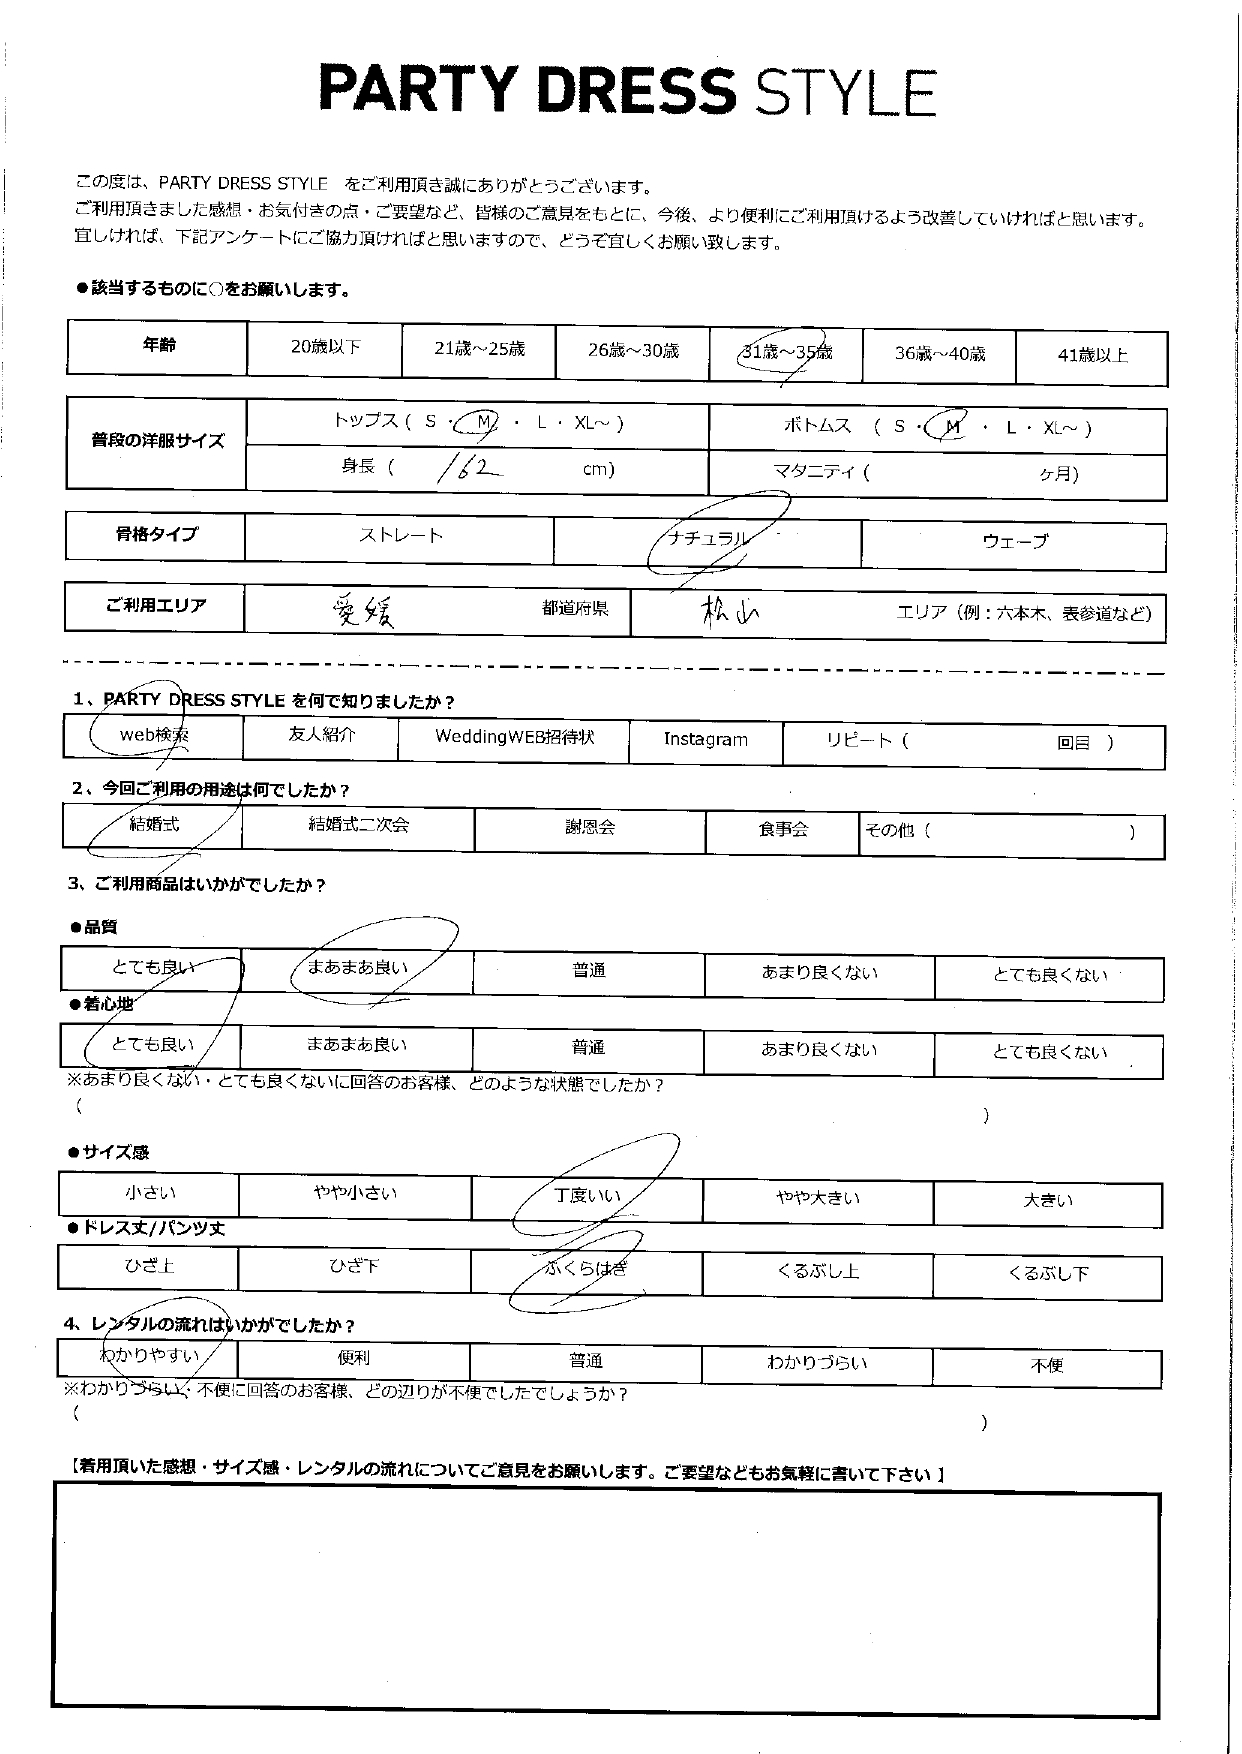 PARTY DRESS STYLE
この度は、PARTY DRESS STYLE をご利用頂き誠にありがとうございます。
ご利用頂きました感想・お気付きの点・ご要望など、皆様のご意見をもとに、今後、より便利にご利用頂けるよう改善していければと思います。
宜しければ、下記アンケートにご協力頂ければと思いますので、どうぞ宜しくお願い致します。
●該当するものに○をお願いします。
年齢 20歳以下 21歳～25歳 26歳～30歳 31歳～35歳 36歳～40歳 41歳以上
普段の洋服サイズ
トップス ( S ・ M ・ L ・ XL～ ) ボトムス ( S ・ M ・ L ・ XL～ )
身長 ( 162 cm) マタニティ ( ヶ月)
骨格タイプ ストレート ナチュラル ウェーブ
ご利用エリア 愛媛 都道府県 松山 エリア（例：六本木、表参道など）
1、PARTY DRESS STYLE を何で知りましたか？
web検索 友人紹介 WeddingWEB招待状 Instagram リピート ( 回目 )
2、今回ご利用の用途は何でしたか？
結婚式 結婚式二次会 謝恩会 食事会 その他 ( )
3、ご利用商品はいかがでしたか？
●品質
とても良い まあまあ良い 普通 あまり良くない とても良くない
●着心地
とても良い まあまあ良い 普通 あまり良くない とても良くない
※あまり良くない・とても良くないに回答のお客様、どのような状態でしたか？
( )
●サイズ感
小さい やや小さい 丁度いい やや大きい 大きい
●ドレス丈/パンツ丈
ひざ上 ひざ下 ふくらはぎ くるぶし上 くるぶし下
4、レンタルの流れはいかがでしたか？
わかりやすい 便利 普通 わかりづらい 不便
※わかりづらい・不便に回答のお客様、どの辺りが不便でしたでしょうか？
( )
【着用頂いた感想・サイズ感・レンタルの流れについてご意見をお願いします。ご要望などもお気軽に書いて下さい】